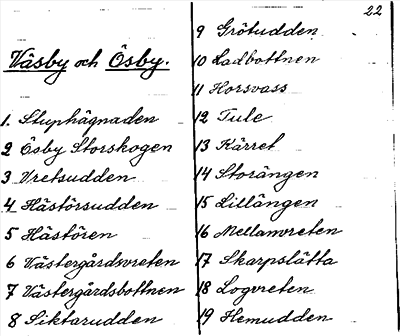 Väsby och Ösby.
1. Stuphägnaden
2 Ösby Storskogen
3 Vretsudden
4 Hästörsudden
5 Hästören
6 Västergårdsvreten
7 Västergårdsbottnen
8 Siktarudden
22
9 Grötudden
10 Ladbottnen
11 Horsvass
12 Tule
13 Kärret
14 Storängen
15 Lillängen
16 Mellanvreten
17 Skarpslätta
18 Logvreten
19 Hemudden